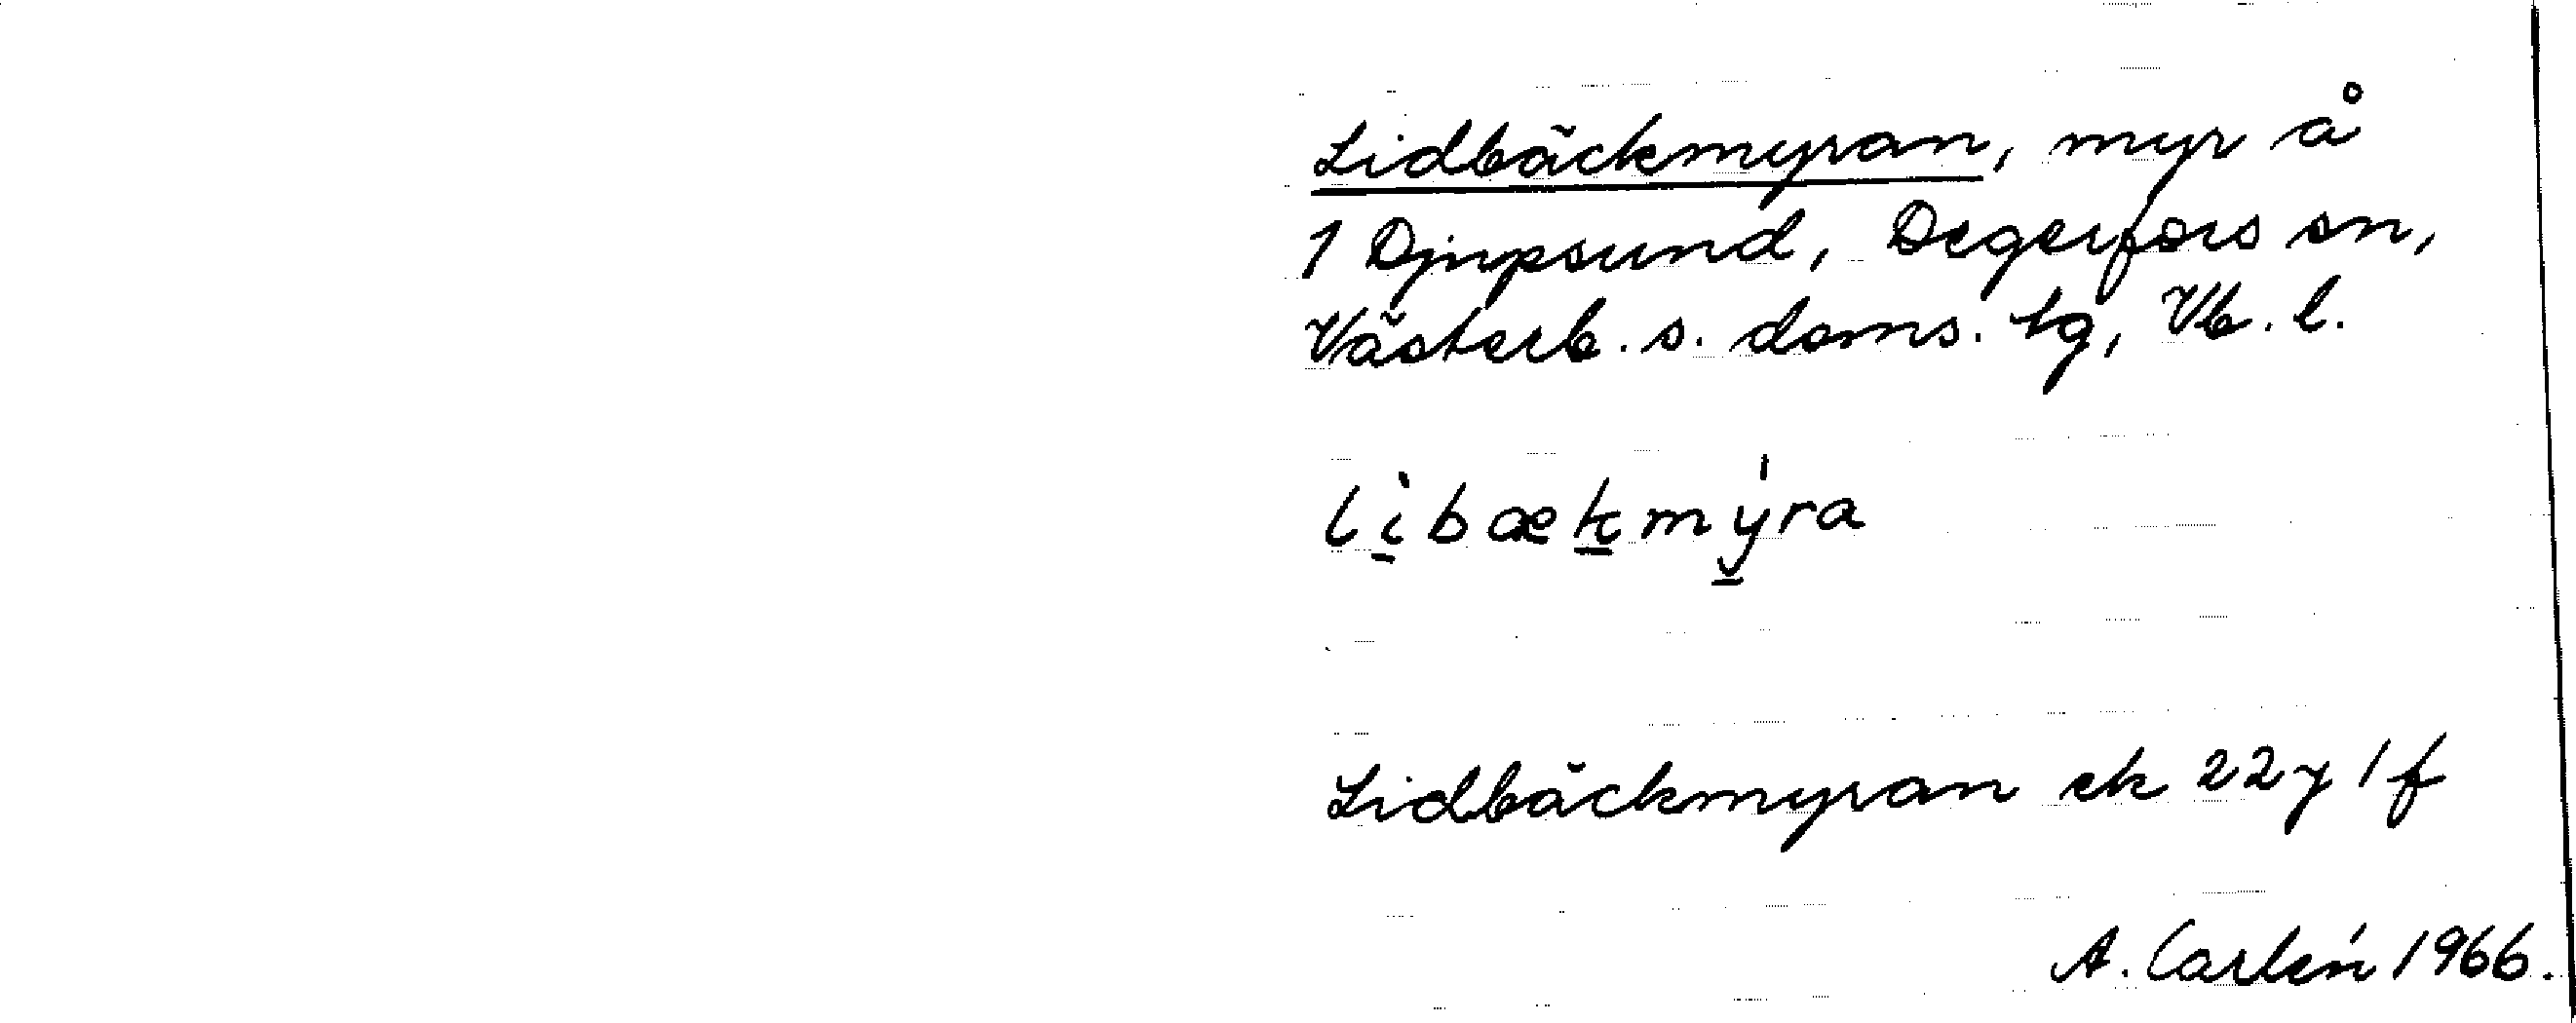 Lidbäckmyran, myr å
1 Djupsund, Degerfors sn,
Västerb. s. doms. tg, Vb. l.
lìbækmýra
Lidbäckmyran ek 22y 1f
A. Carlén 1966.